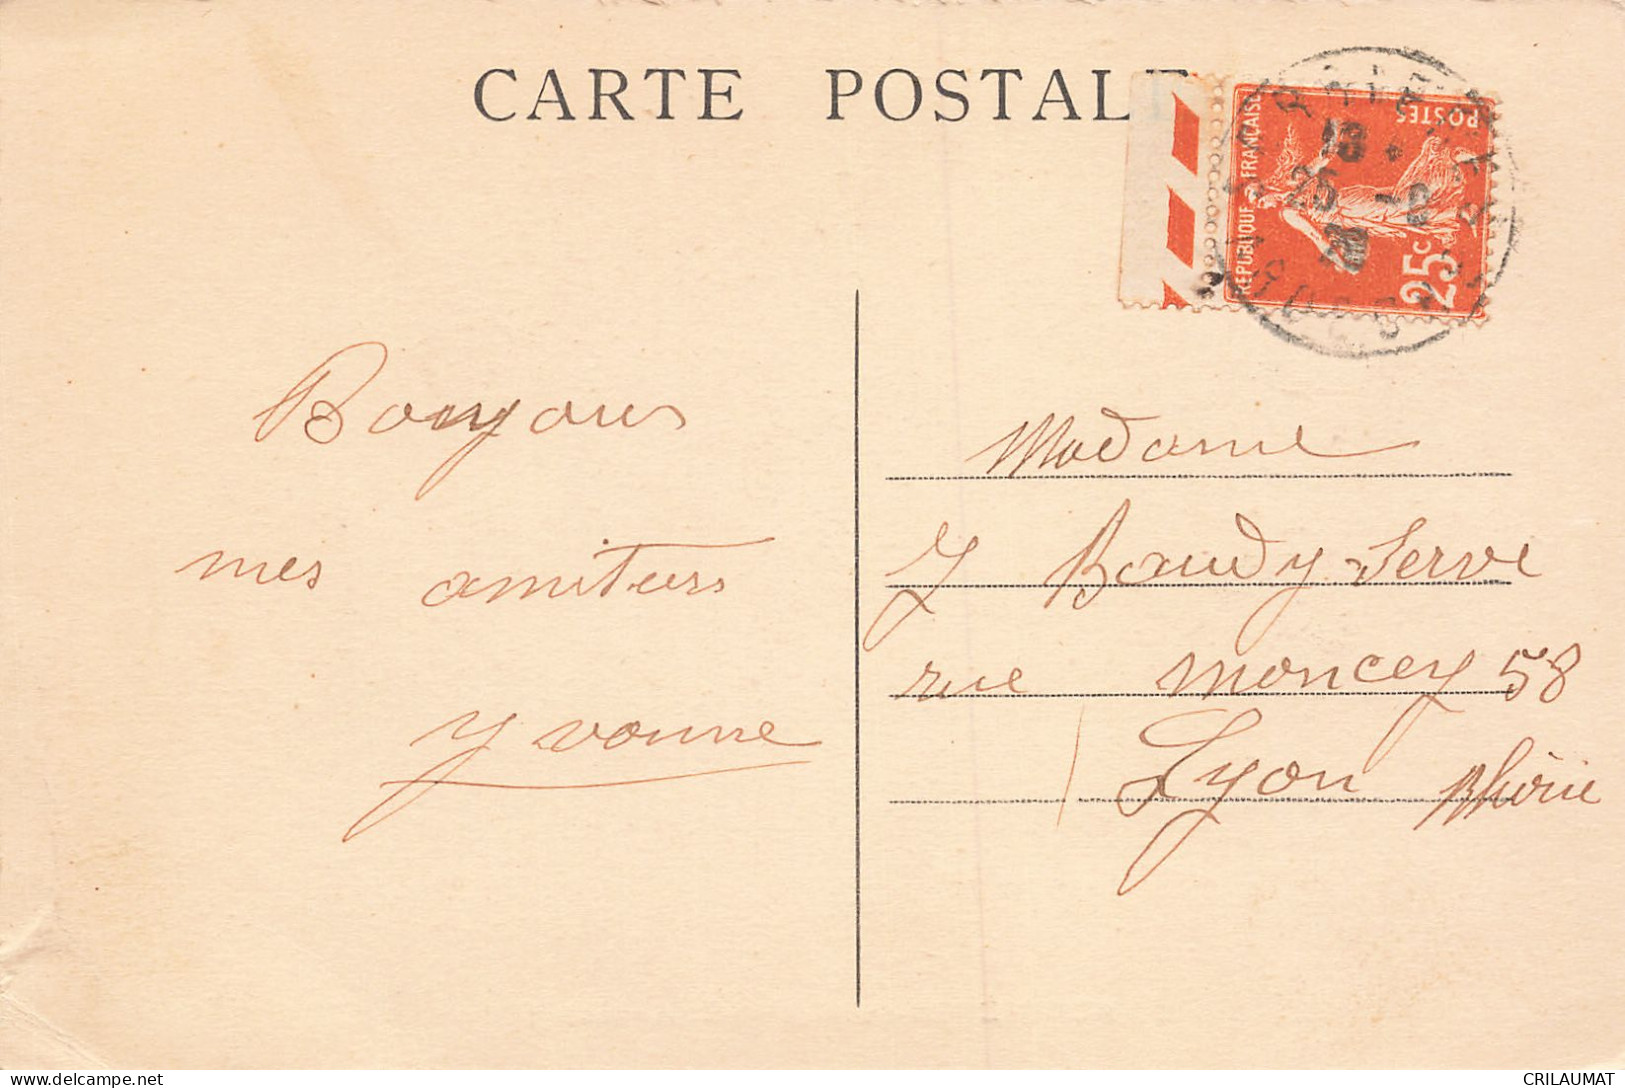 CARTE POSTALE
RÉPUBLIQUE FRANÇAISE
POSTES
25c
18
25 -2
Bonjour
mes amitiers
yvonne
Madame
Y Baudy-Serve
rue moncey 58
Lyon Rhône
www.delcampe.net
CRILAUMAT